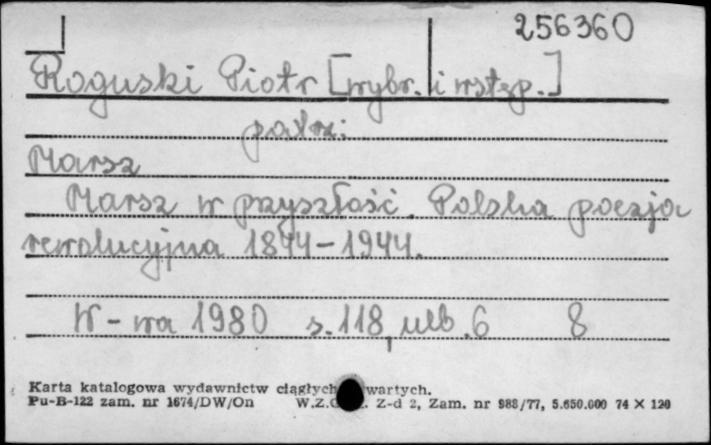 256360
Roguski Piotr [wybr. i wstęp.]
patrz:
Marsz
Marsz w przyszłość. Polska poezja
rewolucyjna 1844-1944.
W-wa 1980 s. 118, nlb. 6 8
Karta katalogowa wydawnictw ciągłych wartych.
Pu-B-122 zam. nr 1674/DW/On W.Z. Z-d 2, Zam. nr 988/77, 5.650.000 74 X 120